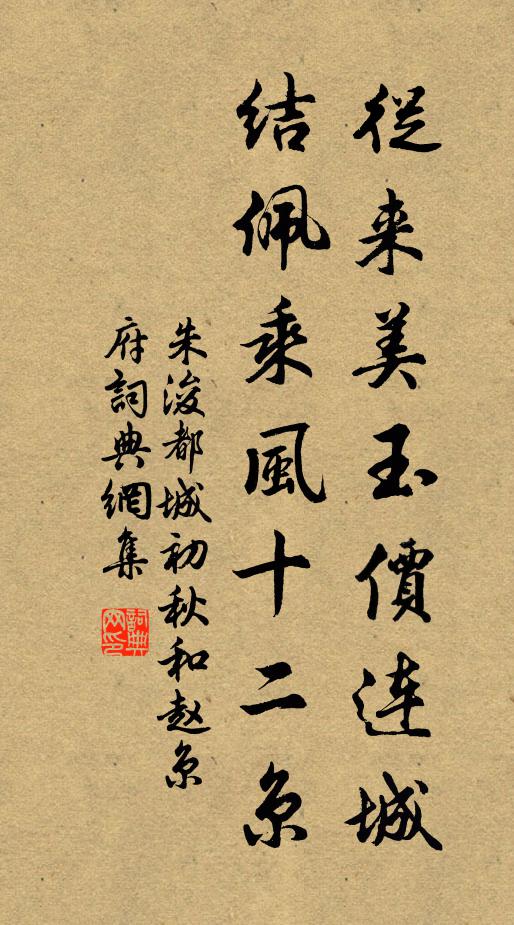 從来美玉價連城
结佩乘風十二京
朱浚都城初秋和赵京
府詞典網集
詞典
网印